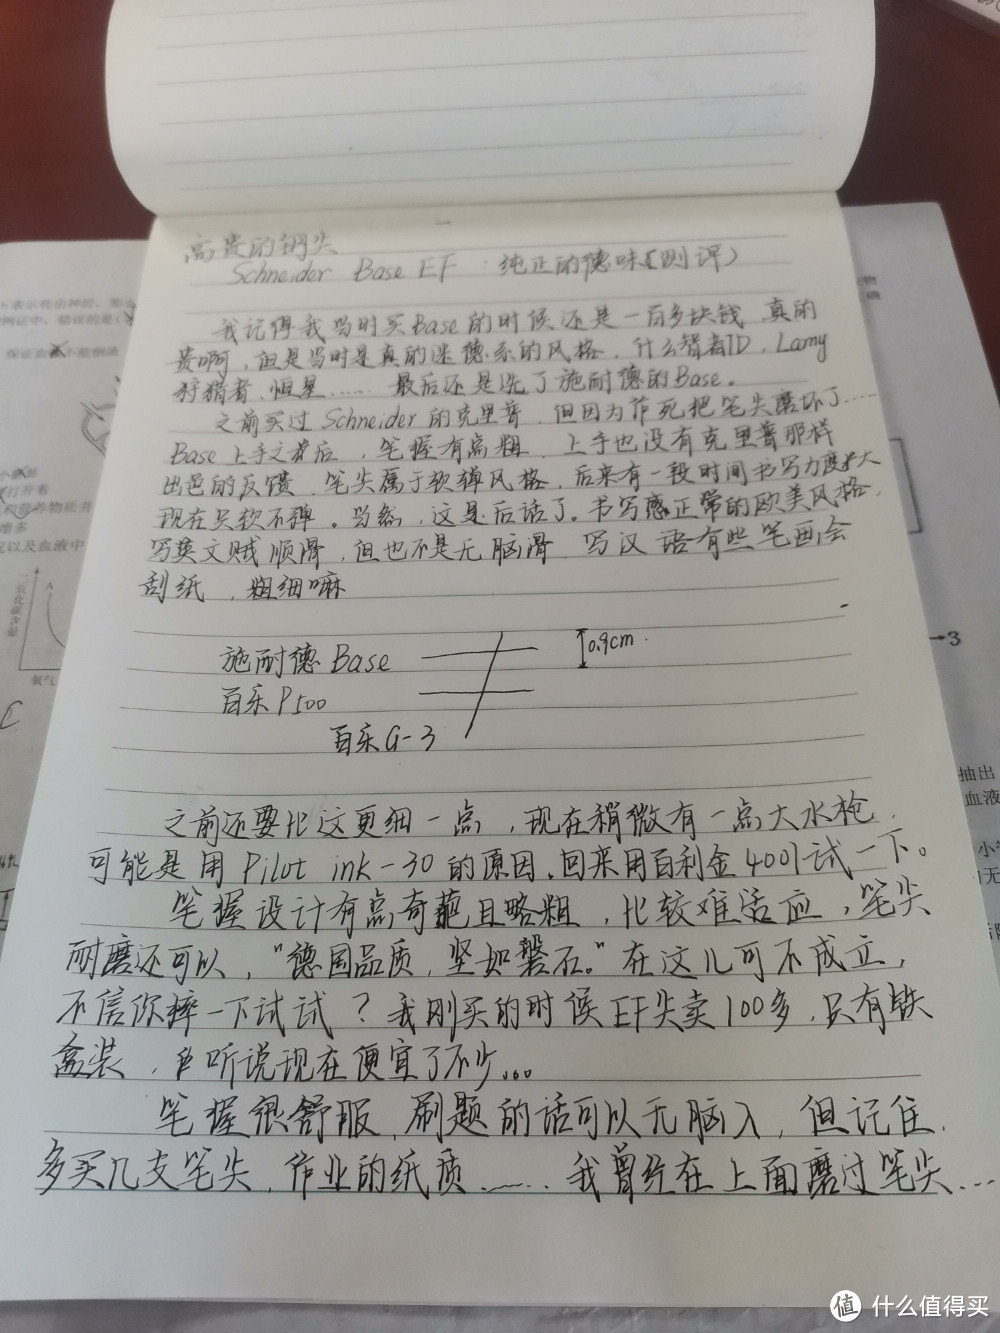 高贵的钢尖
Schneider Base EF：纯正的德味(测评)
我记得我当时买Base的时候还是一百多块钱，真的
贵啊，但是当时是真的迷德系的风格，什么智者ID，Lamy
狩猎者，恒星……最后还是选了施耐德的Base。
之前买过Schneider的克里普，但因为作死把笔尖磨坏了……
Base上手之后，笔握有点粗，上手也没有克里普那样
出色的反馈，笔尖属于软弹风格，后来有一段时间书写力度大
现在只软不弹。当然，这是后话了。书写感正常的欧美风格，
写英文贼顺滑，但也不是无脑滑，写汉语有些笔画会
刮纸，粗细嘛
施耐德Base
0.9cm
百乐P500
百乐G-3
之前还要比这更细一点，现在稍微有一点大水枪，
可能是用Pilot ink-30的原因，回来用百利金4001试一下。
笔握设计有点奇葩且略粗，比较难适应，笔尖
耐磨还可以，"德国品质，坚如磐石。"在这儿可不成立，
不信你摔一下试试？我刚买的时候EF尖卖100多，只有铁
盒装，听说现在便宜了不少...
笔握很舒服，刷题的话可以无脑入，但记住，
多买几支笔尖，作业的纸质……我曾经在上面磨过笔尖…
表示传出神经，那么
例证中，错误的是(
不能倒流
打开着
和营养物质并
增多
况以及血液中
二氧化碳含量
A
氧气
C
3
抽出
血液
小
值 什么值得买